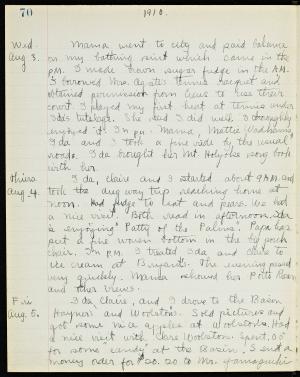 70
1910.
Wed. Mama went to city and paid balance
Aug 3. on my bathing suit which came in the
p.m. I made brown sugar fudge in the A.M.
I borrowed Mrs. tennis racquet and
obtained permission from to use their
court. I played my first at tennis under
Ida's tutelage. She said I did well. I thoroughly
enjoyed it. In p.m. Mama, Mattie
Ida and I took a fine ride by the usual
roads. Ida brought her Mt. Holyoke song book
with her.
Thurs. Ida, Claire and I started about 9 A.M. and
Aug. 4. took the way trip reaching home at
noon. Had fudge to eat and pears. We had
a nice visit. Both read in afternoon. Ida
is enjoying "Patty of the Palms". Papa has
put a fine woven bottom in the big porch
chair. In p.m. I treated Ida and Claire to
ice cream at Bryant's. The evening passed
very quickly. Mama showed her
and other views.
Fri. Ida, Claire, and I drove to the Basin,
Aug. 5. Haynes and Woolstons. Sold pictures and
got some nice apples at Woolstons. Had
a nice visit with Clare Woolston. Spent .05
for some candy at the Basin. I send a
money order for $20.20 to Mr. Yamaguchi